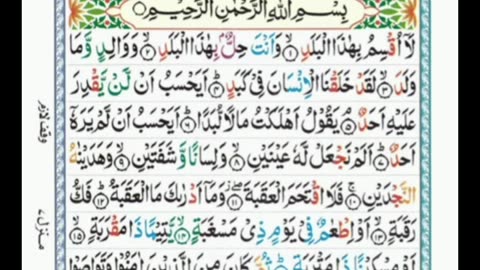 بِسْمِ اللّٰهِ الرَّحْمٰنِ الرَّحِيْمِ
لَاۤ اُقْسِمُ بِهٰذَا الْبَلَدِ ۙ﴿۱﴾ وَاَنْتَ حِلٌّۢ بِهٰذَا الْبَلَدِ ۙ﴿۲﴾ وَوَالِدٍ وَّمَا
وَلَدَ ۙ﴿۳﴾ لَقَدْ خَلَقْنَا الْاِنْسَانَ فِيْ كَبَدٍ ؕ﴿۴﴾ اَيَحْسَبُ اَنْ لَّنْ يَّقْدِرَ
عَلَيْهِ اَحَدٌ ۘ﴿۵﴾ يَقُوْلُ اَهْلَكْتُ مَالًا لُّبَدًا ؕ﴿۶﴾ اَيَحْسَبُ اَنْ لَّمْ يَرَهٗۤ
اَحَدٌ ؕ﴿۷﴾ اَلَمْ نَجْعَلْ لَّهٗ عَيْنَيْنِ ۙ﴿۸﴾ وَلِسَانًا وَّشَفَتَيْنِ ۙ﴿۹﴾ وَهَدَيْنٰهُ
النَّجْدَيْنِ ۚ﴿۱۰﴾ فَلَا اقْتَحَمَ الْعَقَبَةَ ۖ﴿۱۱﴾ وَمَاۤ اَدْرٰىكَ مَا الْعَقَبَةُ ؕ﴿۱۲﴾ فَكُّ
رَقَبَةٍ ۙ﴿۱۳﴾ اَوْ اِطْعٰمٌ فِيْ يَوْمٍ ذِيْ مَسْغَبَةٍ ۙ﴿۱۴﴾ يَّتِيْمًا ذَا مَقْرَبَةٍ ۙ﴿۱۵﴾
اَوْ مِسْكِيْنًا ذَا مَتْرَبَةٍ ؕ﴿۱۶﴾ ثُمَّ كَانَ مِنَ الَّذِيْنَ اٰمَنُوْا وَتَوَاصَوْا